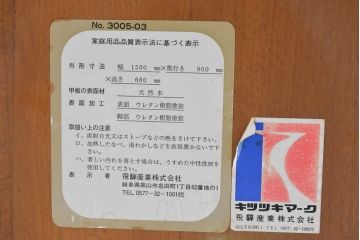 No. 3005-03
家庭用品品質表示法に基づく表示
外形寸法 幅 1500 ㎜×奥行き 900 ㎜
×高さ 660 ㎜
甲板の表面材 天然木
表面加工 表面 ウレタン樹脂塗装
脚部 ウレタン樹脂塗装
取扱い上の注意
イ、直射日光又はストーブなどの熱をさけて下さい。
ロ、加熱したなべ、湯わかしなどを直接置かないで下さい。
ハ、著しい汚れを落とす場合は、うすめた中性洗剤を使用してください。
表示者 飛騨産業株式会社
岐阜県高山市名田町1丁目82番地の1
TEL.0577-32-1001(代)
キツツキマーク
飛騨産業株式会社